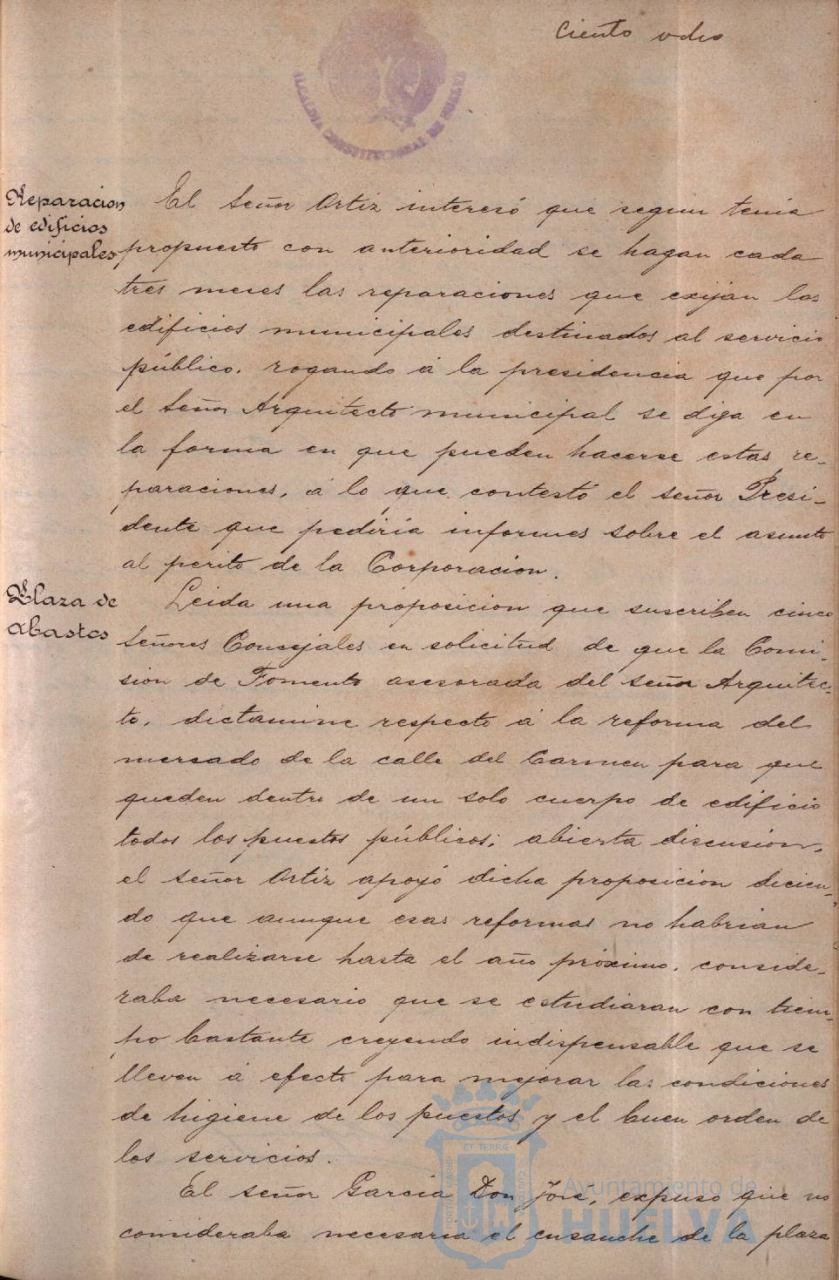 Ciento
ALCALDIA CONSTITUCIONAL DE HUELVA
Reparacion
de edificios
municipales
El Señor Ortiz interesó que segun tenia
propuesto con anterioridad se hagan cada
tres meses las reparaciones que exijan los
edificios municipales destinados al servicio
público, rogando á la presidencia que por
el Señor Arquitecto municipal se diga en
la forma en que pueden hacerse estas re-
paraciones, á lo que contestó el señor Presi-
dente que pediria informes sobre el asunto
al perito de la Corporacion.
Plaza de
Abastos
Leida una proposicion que suscriben cinco
Señores Consejales en solicitud de que la Comi-
sion de Fomento asesorada del señor Arquitec-
to, dictamine respecto á la reforma del
mercado de la calle del Carmen para que
queden dentro de un solo cuerpo de edificio
todos los puestos públicos; abierta discusion,
el señor Ortiz apoyó dicha proposicion dicien-
do que aunque esas reformas no habrian
de realizarse hasta el año próximo, conside-
raba necesario que se estudiaran con tiem-
po bastante creyendo indispensable que se
lleven á efecto para mejorar las condiciones
de higiene de los puestos y el buen orden de
los servicios.
El señor Garcia Don José, expuso que no
consideraba necesaria el ensanche de la plaza
Ayuntamiento de
HUELVA